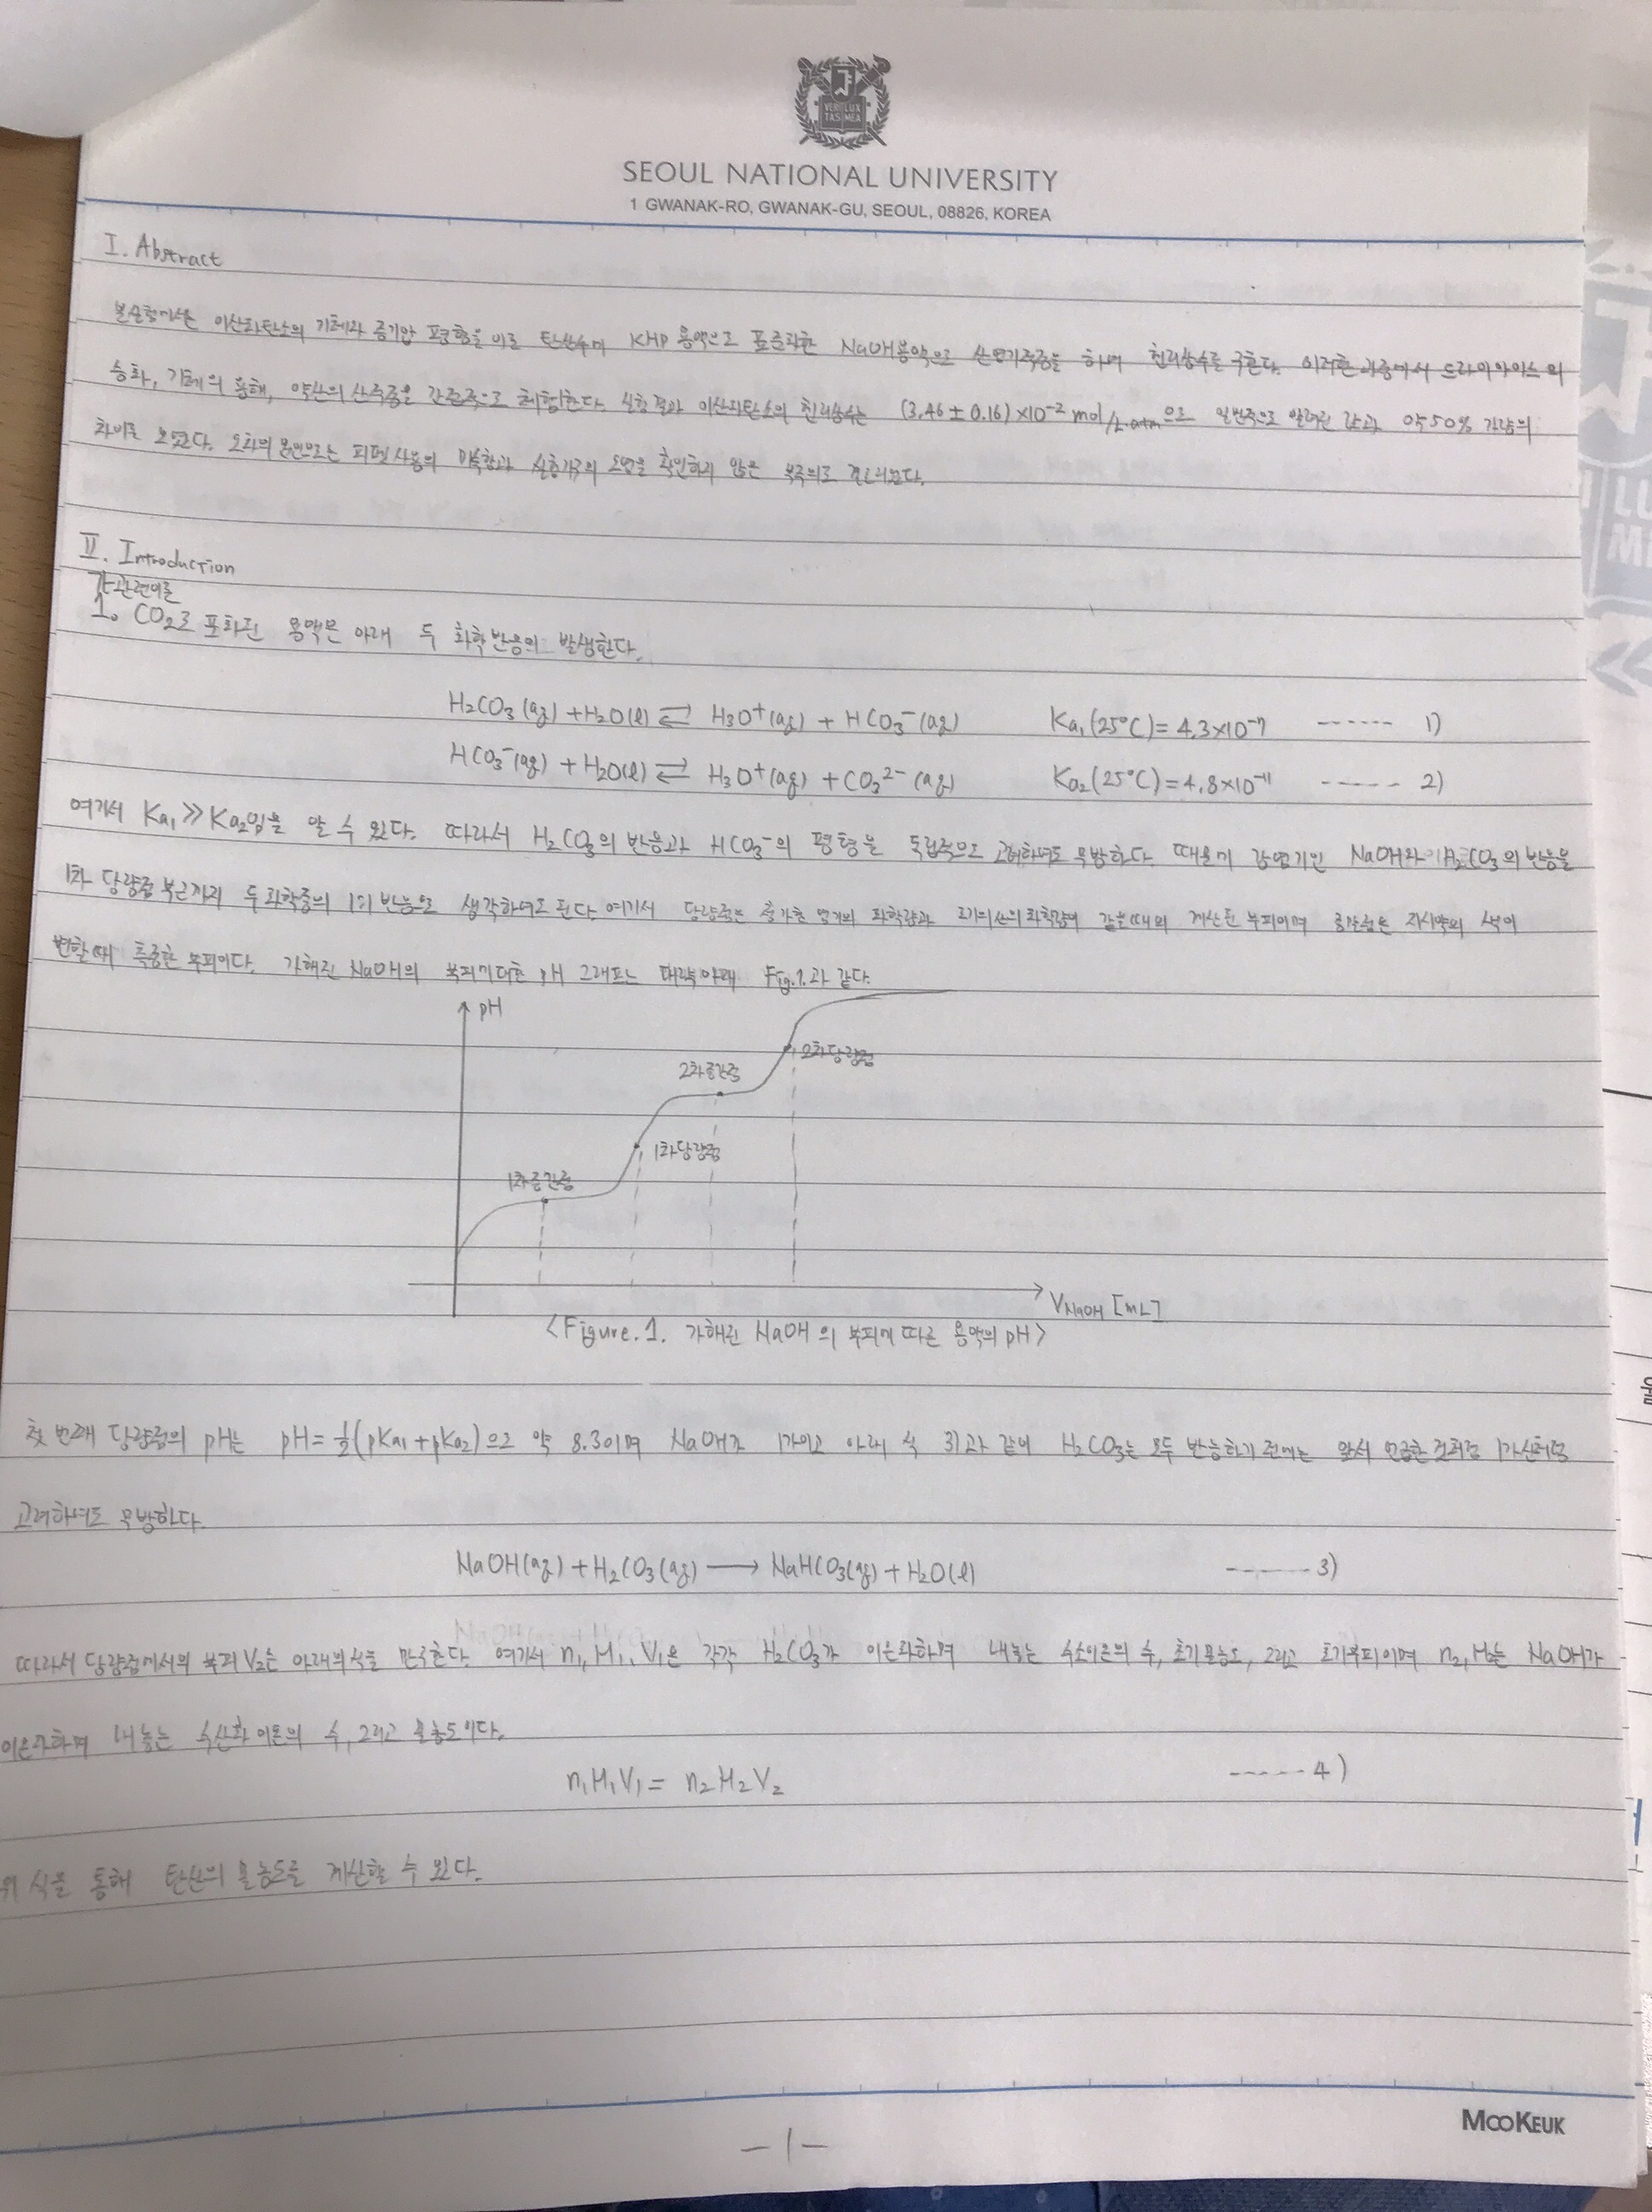 VERI LUX
TAS MEA
SEOUL NATIONAL UNIVERSITY
1 GWANAK-RO, GWANAK-GU, SEOUL, 08826, KOREA
I. Abstract
본 실험에서는 이산화탄소의 기체와 증기압 평형을 이룬 탄산수에 KHP 용액으로 표준화한 NaOH용액으로 산염기적정을 하여 헨리상수를 구한다. 이러한 과정에서 드라이아이스의
승화, 기체의 용해, 약산의 산축중은 간접적으로 체험한다. 실험 결과 이산화탄소의 헨리상수는 (3.46 ± 0.16) ×10⁻² mol/L·atm으로 일반적으로 알려진 값과 약 50% 가량의
차이를 보였다. 오차의 원인으로는 피펫 사용의 미숙함과 실험기구의 오염을 확인하지 않은 부주의로 결론지었다.
II. Introduction
가. 관련이론
1. CO₂로 포화된 용액은 아래 두 화학반응이 발생한다.
H₂CO₃(aq) + H₂O(l) ⇄ H₃O⁺(aq) + HCO₃⁻(aq) Ka₁(25℃) = 4.3×10⁻⁷ ------ 1)
HCO₃⁻(aq) + H₂O(l) ⇄ H₃O⁺(aq) + CO₃²⁻(aq) Ka₂(25℃) = 4.8×10⁻¹¹ ----- 2)
여기서 Ka₁ ≫ Ka₂임을 알 수 있다. 따라서 H₂CO₃의 반응과 HCO₃⁻의 평형을 독립적으로 고려하여도 무방하다. 때문에 강염기인 NaOH와 H₂CO₃의 반응을
1차 당량점 부근까지 두 화학종의 1:1 반응으로 생각하여도 된다. 여기서 당량점은 첨가한 염기의 화학량과 초기의 산의 화학량이 같을 때의 계산된 부피이며 종말점은 지시약의 색이
변할 때 측정한 부피이다. 가해진 NaOH의 부피에 대한 pH 그래프는 대략 아래 Fig.1.과 같다.
pH
2차당량점
2차중간점
1차당량점
1차중간점
V_NaOH [mL]
<Figure.1. 가해진 NaOH의 부피에 따른 용액의 pH>
첫 번째 당량점의 pH는 pH = ½(pKa₁ + pKa₂)으로 약 8.3이며 NaOH가 1가이고 아래 식 3)과 같이 H₂CO₃는 모두 반응하기 전에는 앞서 언급한 것처럼 1가산처럼
고려하여도 무방하다.
NaOH(aq) + H₂CO₃(aq) ⟶ NaHCO₃(aq) + H₂O(l) ------ 3)
따라서 당량점에서의 부피 V₂는 아래의 식을 만족한다. 여기서 n₁, M₁, V₁은 각각 H₂CO₃가 이온화하며 내놓는 수소이온의 수, 초기 몰농도, 그리고 초기부피이며 n₂, M₂는 NaOH가
이온화하며 내놓는 수산화 이온의 수, 그리고 몰농도이다.
n₁M₁V₁ = n₂M₂V₂ ----- 4)
위 식을 통해 탄산의 몰농도를 계산할 수 있다.
MOOKEUK
- 1 -